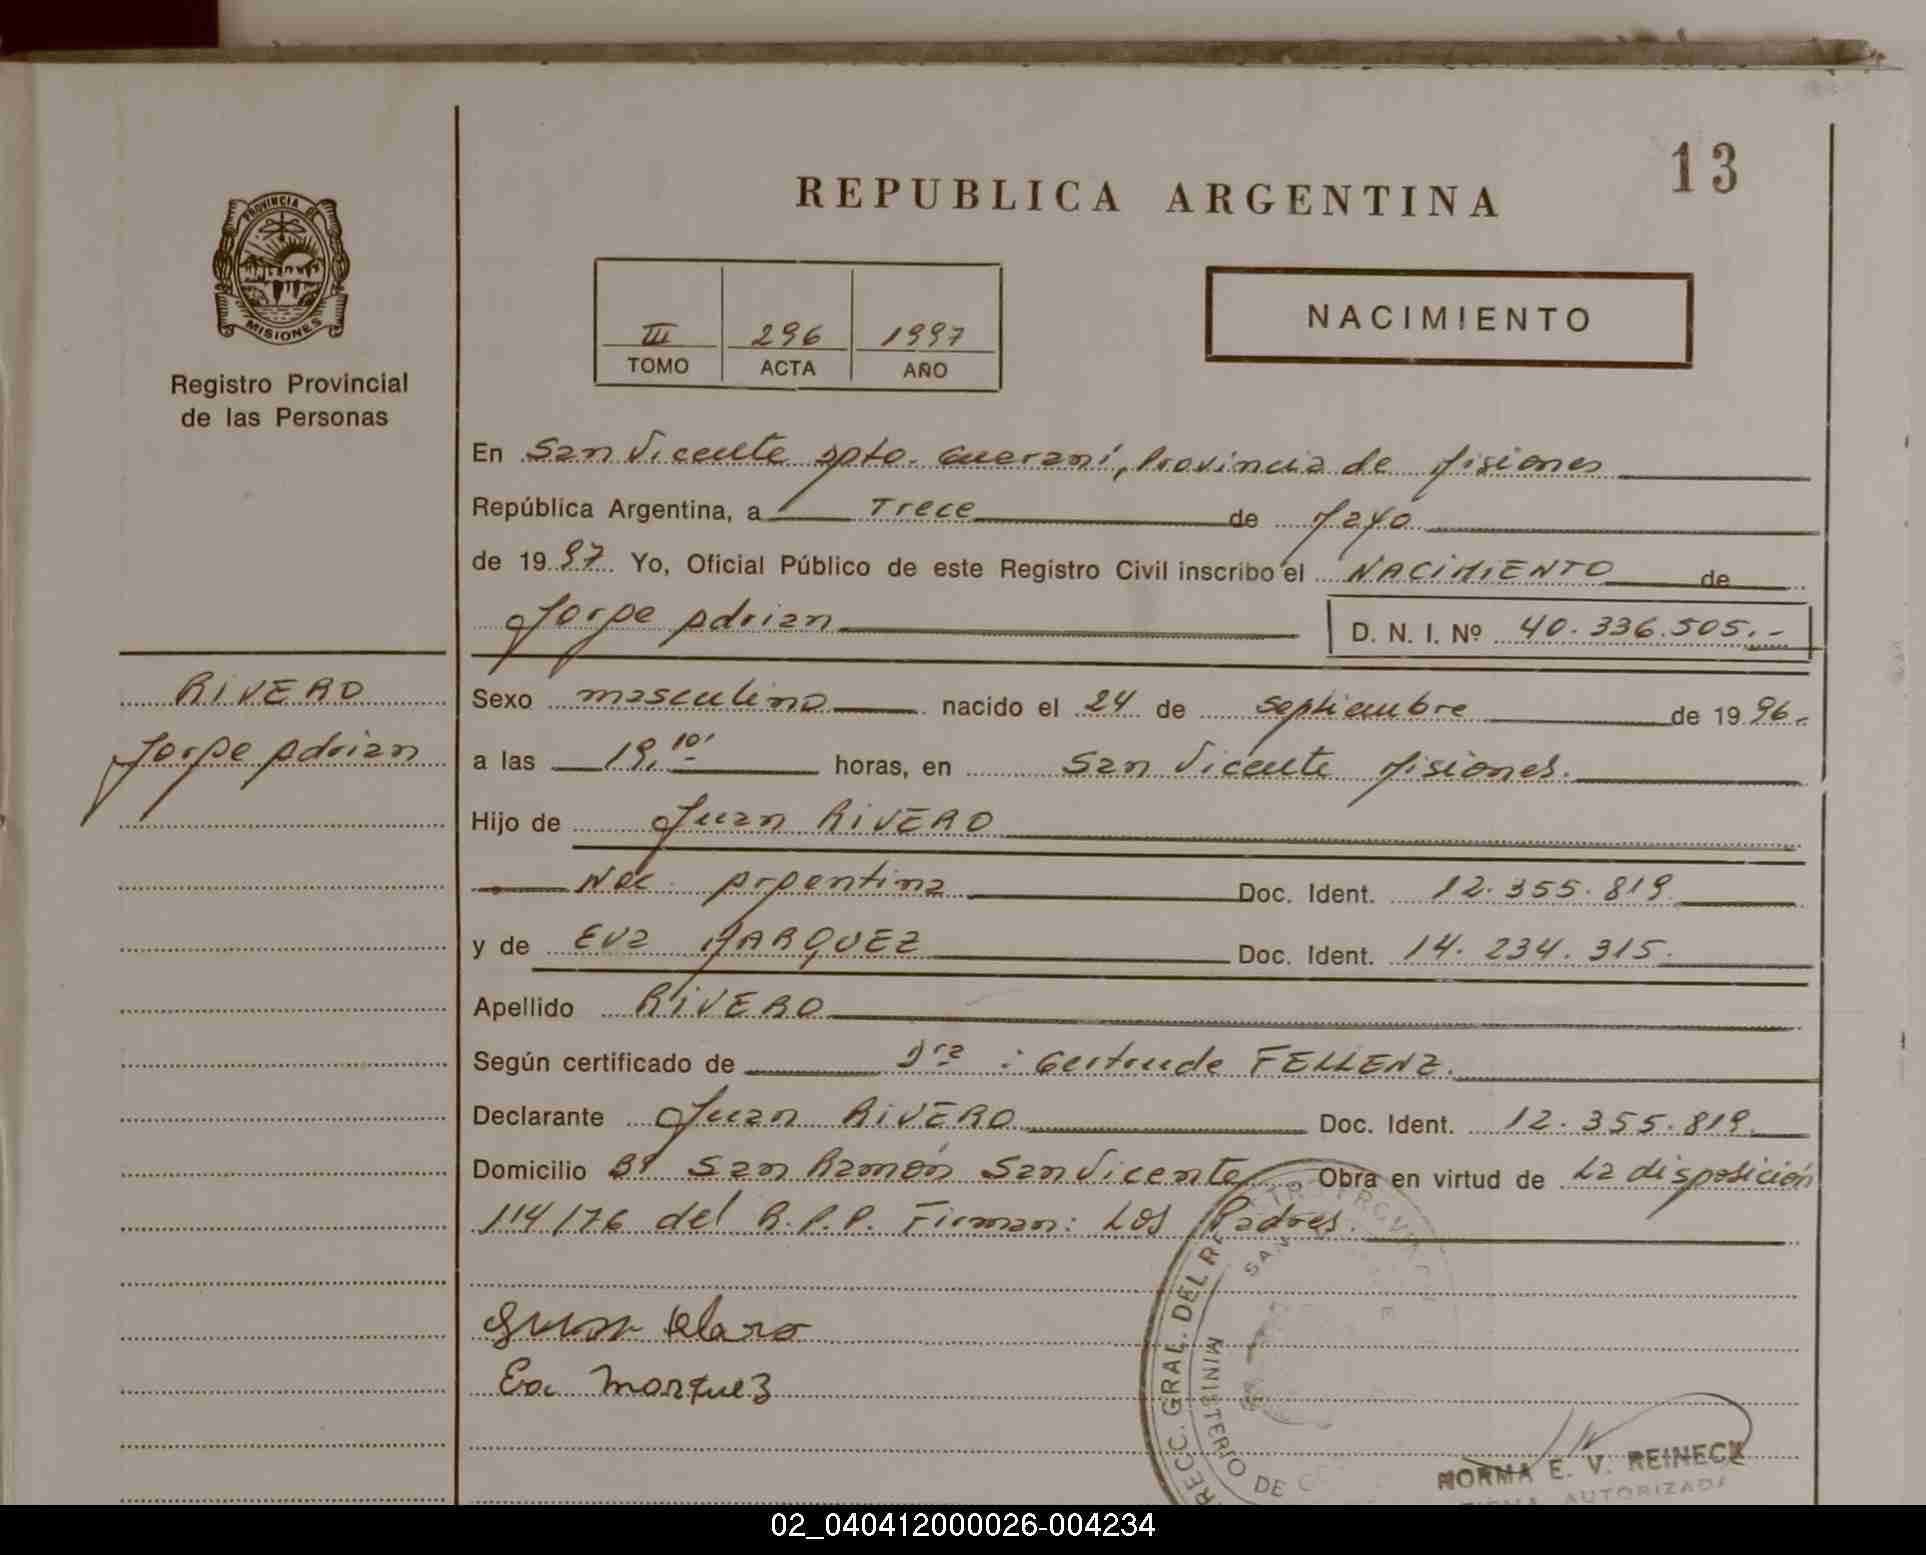 13
REPUBLICA ARGENTINA
PROVINCIA DE
MISIONES
Registro Provincial
de las Personas
III 296 1997
TOMO ACTA AÑO
NACIMIENTO
En San Vicente Dpto. Guaraní, Provincia de Misiones
República Argentina, a Trece de Mayo
de 19 97 Yo, Oficial Público de este Registro Civil inscribo el NACIMIENTO de
Jorge Adrian D. N. I. Nº 40.336.505.-
RIVERO
Jorge Adrian
Sexo masculino nacido el 24 de septiembre de 19 96.
a las 19,10' horas, en San Vicente Misiones.
Hijo de Juan RIVERO
Nac. Argentina Doc. Ident. 12.355.819
y de Eva MARQUEZ Doc. Ident. 14.234.315.
Apellido RIVERO
Según certificado de Dra : Gertrude FELLENZ.
Declarante Juan RIVERO Doc. Ident. 12.355.819.
Domicilio Bº San Ramón San Vicente Obra en virtud de La disposición
114/76 del R.P.P. Firman: Los Padres.
Eva Marquez
RECC. GRAL. DEL RE
MINISTERIO DE
NORMA E. V. REINECK
AUTORIZADA
02_040412000026-004234